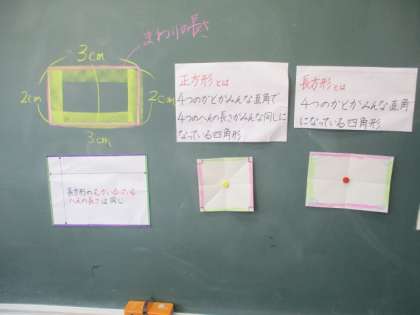 まわりの長さ
3cm
2cm
2cm
3cm
正方形とは
4つのかどがみんな直角で
4つのへんの長さがみんな同じに
なっている四角形
長方形とは
4つのかどがみんな直角
になっている四角形
長方形のむかいあっている
へんの長さは同じ